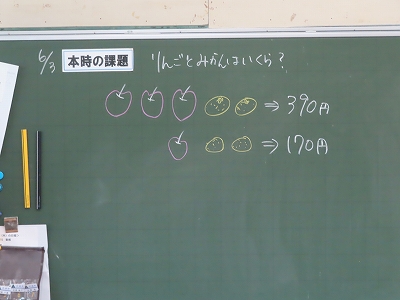 6/3 本時の課題 りんごとみかんはいくら?
⇒ 390円
⇒ 170円